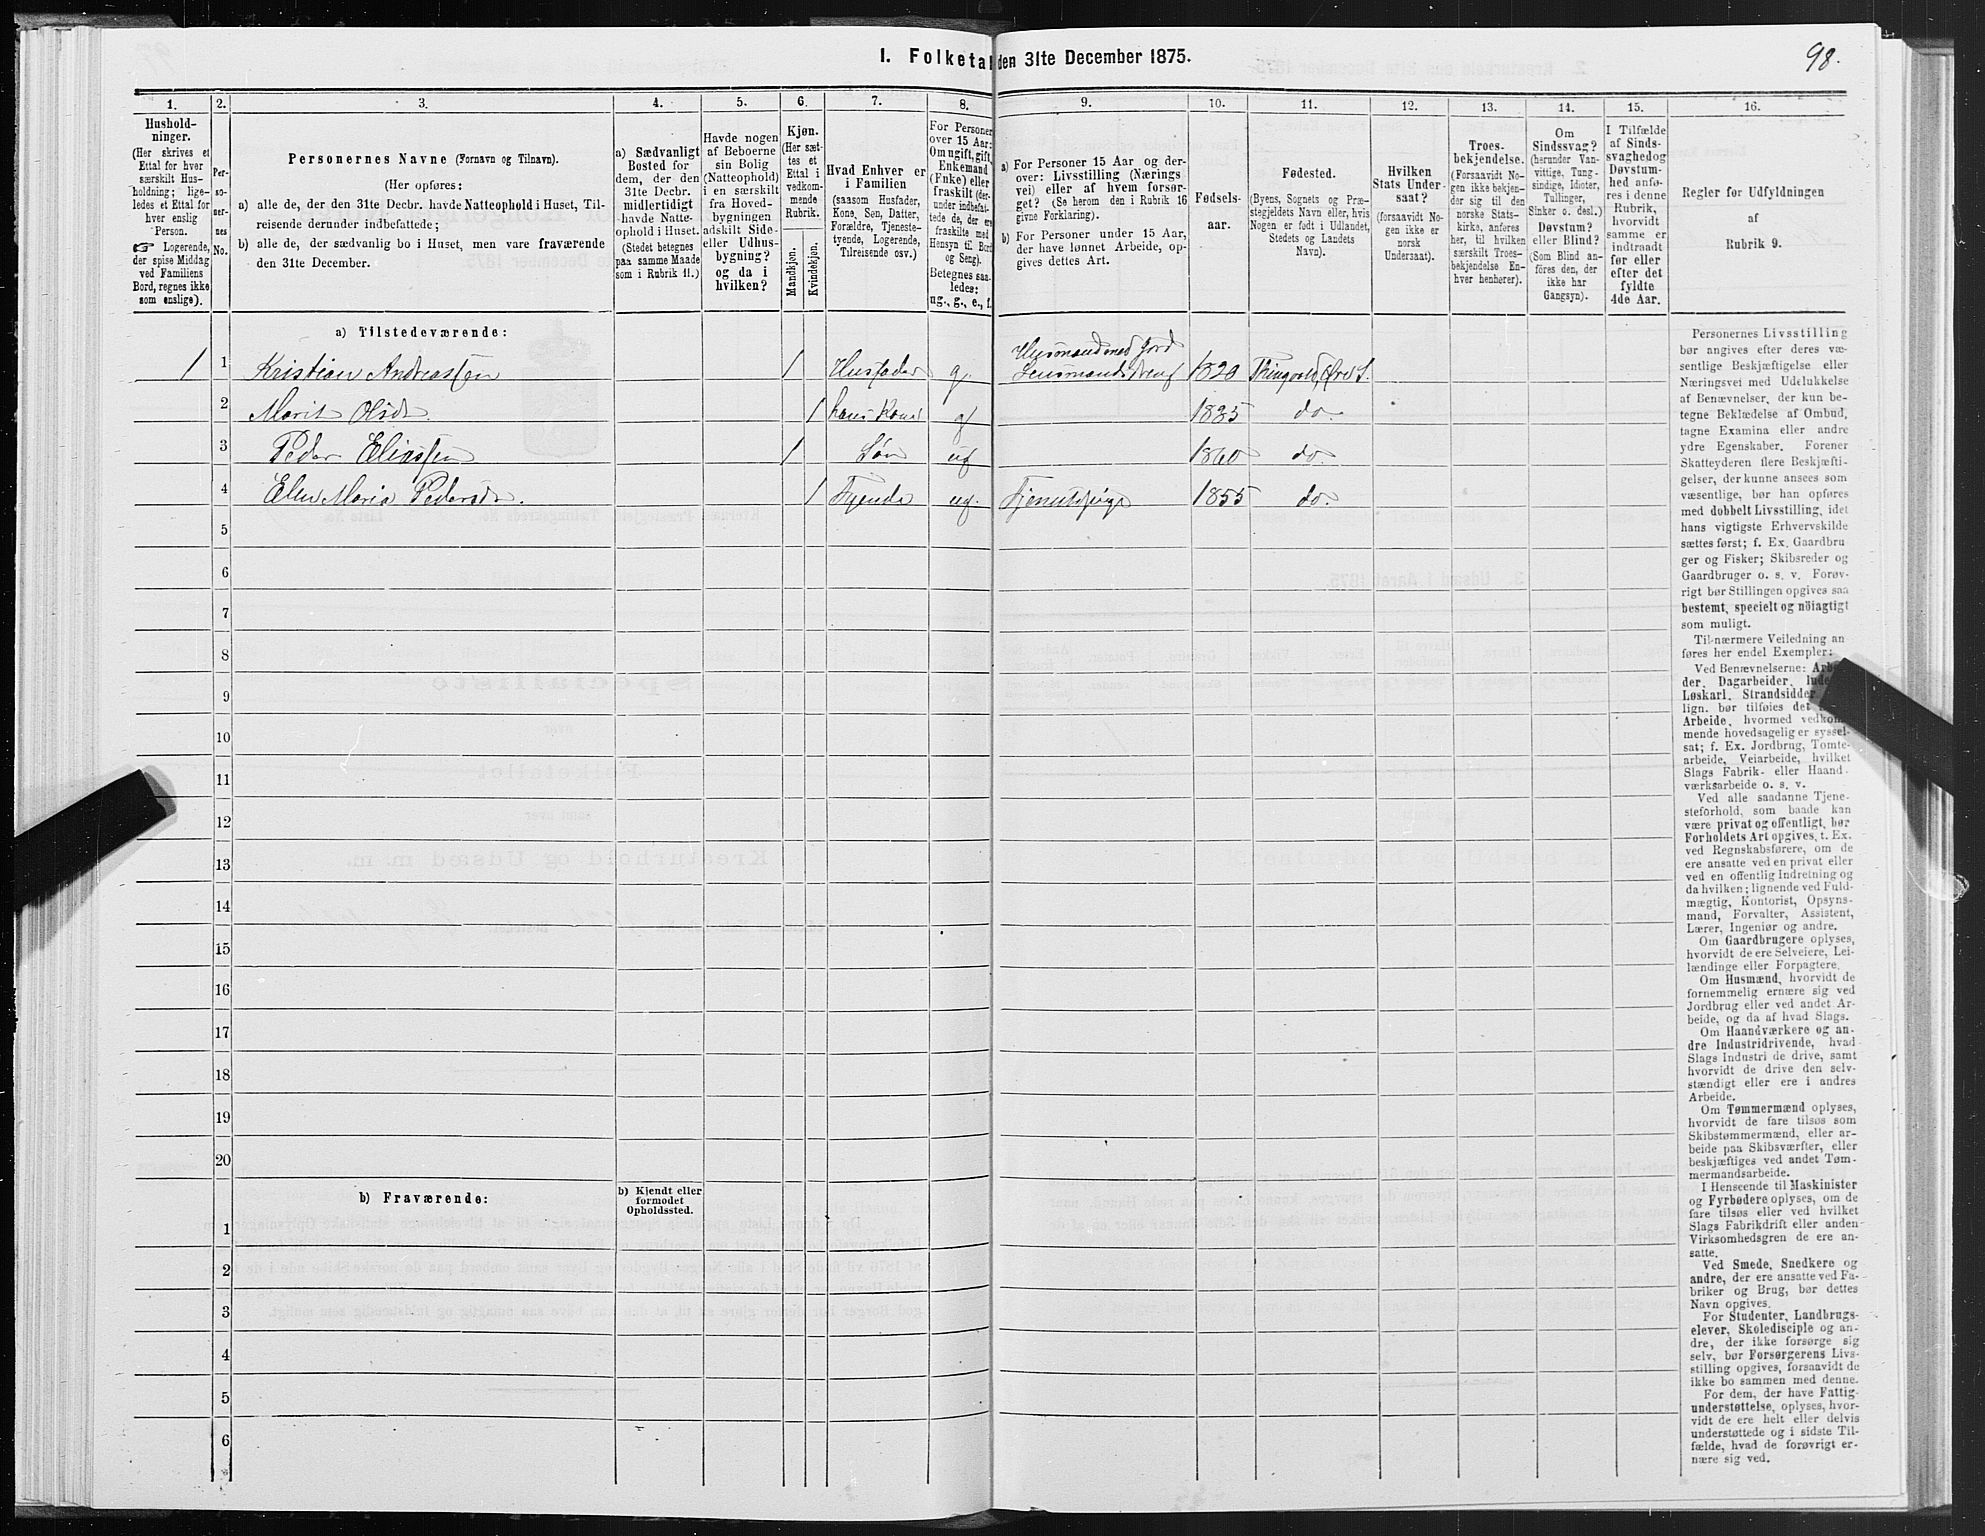 98.
I. Folketal den 31te December 1875.
1. 2. 3. 4. 5. 6. 7. 8. 9. 10. 11. 12. 13. 14. 15. 16.
Hushold-
ninger.
(Her skrives et
Ettal for hver
særskilt Hus-
holdning; lige-
ledes et Ettal for
hver enslig
Person.
☞ Logerende,
der spise Middag
ved Familiens
Bord, regnes ikke
som enslige).
Per-
so-
ner-
nes
No.
Personernes Navne (Fornavn og Tilnavn).
(Her opføres:
a) alle de, der den 31te Decbr. havde Natteophold i Huset, Til-
reisende derunder indbefattede;
b) alle de, der sædvanlig bo i Huset, men vare fraværende
den 31te December.
a) Sædvanligt
Bosted for
dem, der den
31te Decbr.
midlertidigt
havde Natte-
ophold i Huset.
(Stedet betegnes
paa samme Maade
som i Rubrik 11.)
Havde nogen
af Beboerne
sin Bolig
(Natteophold)
i en særskilt
fra Hoved-
bygningen
adskilt Side-
eller Udhus-
bygning?
og da i
hvilken?
Kjøn.
(Her sæt-
tes et
Ettal i
vedkom-
mende
Rubrik.
Mandkjøn.
Kvindekjøn.
Hvad Enhver er
i Familien
(saasom Husfader,
Kone, Søn, Datter,
Forældre, Tjeneste-
tyende, Logerende,
Tilreisende osv.)
For Personer
over 15 Aar:
Om ugift, gift,
Enkemand
(Enke) eller
fraskilt (der-
under indbefat-
tede de, der ere
fraskilte med
Hensyn til Bord
og Seng).
Betegnes saa-
ledes:
ug., g., e., f.
a) For Personer 15 Aar og der-
over: Livsstilling (Nærings
vei) eller af hvem forsør-
get? (Se herom den i Rubrik 16
givne Forklaring).
b) For Personer under 15 Aar,
der have lønnet Arbeide, op-
gives dettes Art.
Fødsels-
aar.
Fødested.
(Byens, Sognets og Præ-
stegjeldets Navn eller, hvis
Nogen er født i Udlandet,
Stedets og Landets
Navn).
Hvilken
Stats Under-
saat?
(forsaavidt No-
gen ikke er
norsk
Undersaat).
Troes-
bekjendelse.
(Forsaavidt No-
gen ikke bekjen-
der sig til den
norske Stats-
kirke, anføres
her, til hvilken
særskilt Troes-
bekjendelse En-
hver henhører).
Om
Sindssvag?
(herunder Van-
vittige, Tung-
sindige, Idioter,
Tullinger,
Sinker o. desl.)
Døvstum?
eller Blind?
(Som Blind an-
føres den, der
ikke har
Gangsyn).
I Tilfælde
af Sinds-
svaghed og
Døvstum-
hed anfø-
res i denne
Rubrik,
hvorvidt
samme er
indtraadt
før eller
efter det
fyldte
4de Aar.
Regler for Udfyldningen
af
Rubrik 9.
a) Tilstedeværende:
Husmand med Jord
1 1 Kristian Andreassen 1 Husfader g. Lensmandsdreng 1820 Thingvold, Øre S.
2 Marit Olsdt. 1 hans Kone g 1835 do.
3 Peder Eliassen 1 Søn ug 1860 do.
4 Elen Maria Pedersdt. 1 Tyende ug. Tjenestepige 1855 do.
5
6
7
8
9
10
11
12
13
14
15
16
17
18
19
20
b) Fraværende:
b) Kjendt eller
formodet
Opholdssted.
1
2
3
4
5
6
Personernes Livsstilling
bør angives efter deres væ-
sentlige Beskjæftigelse eller
Næringsvei med Udelukkelse
af Benævnelser, der kun be-
tegne Beklædelse af Ombud,
tagne Examina eller andre
ydre Egenskaber. Forener
Skatteyderen flere Beskjæfti-
gelser, der kunne ansees som
væsentlige, bør han opføres
med dobbelt Livsstilling, idet
hans vigtigste Erhvervskilde
sættes først; f. Ex. Gaardbru
ger og Fisker; Skibsreder og
Gaardbruger o. s. v. Forøv-
rigt bør Stillingen opgives saa
bestemt, specielt og nöiagtigt
som muligt.
Til nærmere Veiledning an
føres her endel Exempler:
Ved Benævnelserne: Arbei-
der, Dagarbeider, Inder
Løskarl, Strandsidder
lign. bør tilføies det
Arbeide, hvormed vedkom-
mende hovedsagelig er syssel-
sat; f. Ex. Jordbrug, Tomte-
arbeide, Veiarbeide, hvilket
Slags Fabrik- eller Haand-
værksarbeide o. s. v.
Ved alle saadanne Tjene-
steforhold, som baade kan
være privat og offentligt, bør
Forholdets Art opgives, t. Ex.
ved Regnskabsførere, om de
ere ansatte ved en privat eller
ved en offentlig Indretning og
da hvilken; lignende ved Fuld-
mægtig, Kontorist, Opsyns-
mand, Forvalter, Assistent,
Lærer, Ingeniør og andre.
Om Gaardbrugere oplyses,
hvorvidt de ere Selveiere, Lei-
lændinge eller Forpagtere.
Om Husmænd, hvorvidt de
fornemmelig ernære sig ved
Jordbrug eller ved andet Ar-
beide, og da af hvad Slags.
Om Haandværkere og an-
dre Industridrivende, hvad
Slags Industri de drive, samt
hvorvidt de drive den selv-
stændigt eller ere i andres
Arbeide.
Om Tømmermænd oplyses,
hvorvidt de fare tilsøs som
Skibstømmermænd, eller ar-
beide paa Skibsværfter, eller
beskjæftiges ved andet Tøm-
mermandsarbeide.
I Henseende til Maskinister
og Fyrbødere oplyses, om de
fare tilsøs eller ved hvilket
Slags Fabrikdrift eller anden
Virksomhedsgren de ere an-
satte.
Ved Smede, Snedkere og
andre, der ere ansatte ved Fa-
briker og Brug, bør dettes
Navn opgives.
For Studenter, Landbrugs-
elever, Skoledisciple og an-
dre, der ikke forsørge sig
selv, bør Forsørgerens Livs-
stilling opgives, forsaavidt de
ikke bo sammen med denne.
For dem, der have Fattig-
understøttelse, oplyses, hvor-
vidt de ere helt eller delvis
understøttede og i sidste Til-
fælde, hvad de forøvrigt er-
nære sig ved.